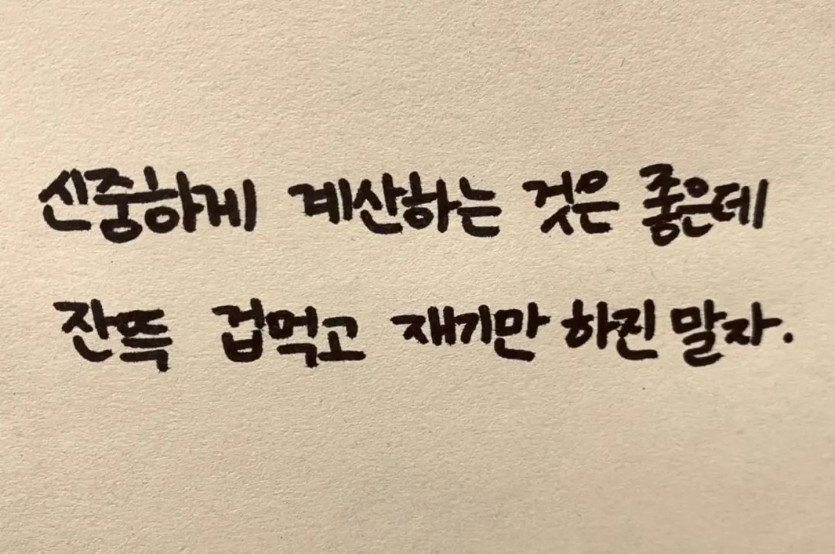 신중하게 계산하는 것은 좋은데
잔뜩 겁먹고 재기만 하진 말자.